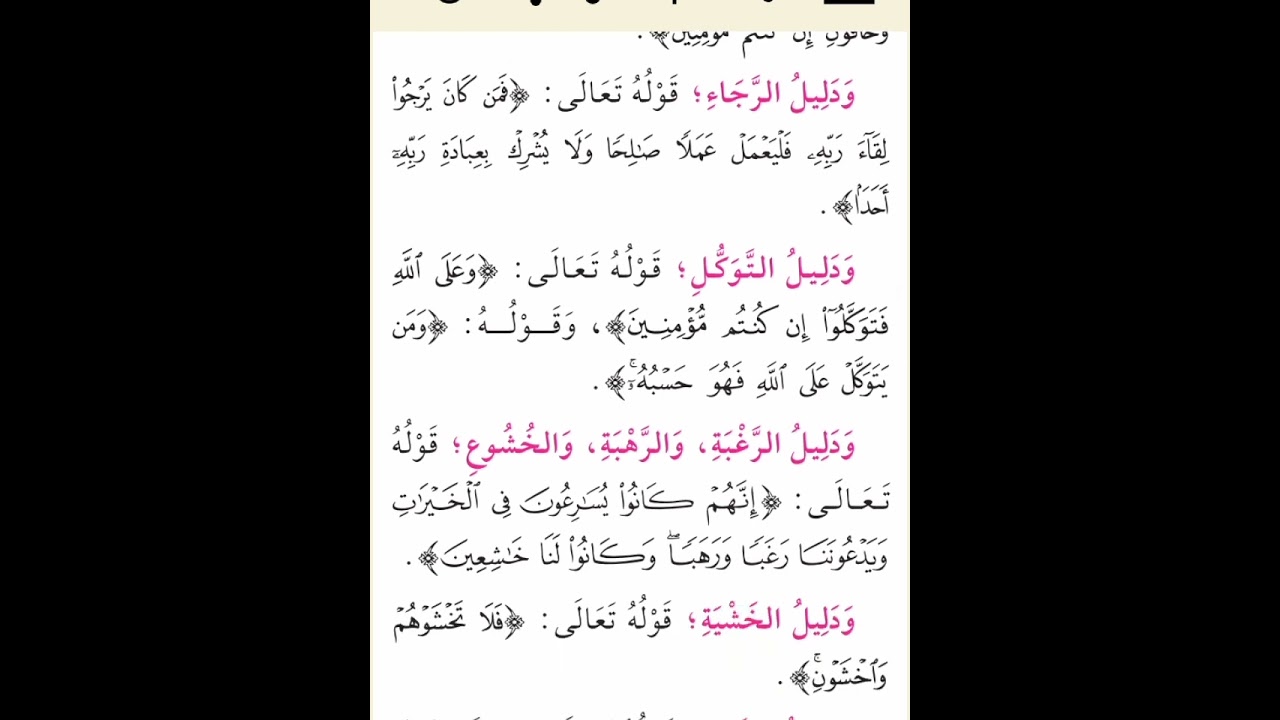 وَخَافُونِ إِن كُنتُم مُّؤْمِنِينَ﴾.
وَدَلِيلُ الرَّجَاءِ؛ قَوْلُهُ تَعَالَى: ﴿فَمَن كَانَ يَرْجُوا۟
لِقَآءَ رَبِّهِۦ فَلْيَعْمَلْ عَمَلًا صَٰلِحًا وَلَا يُشْرِكْ بِعِبَادَةِ رَبِّهِۦٓ
أَحَدًۢا﴾.
وَدَلِيلُ التَّوَكُّلِ؛ قَوْلُهُ تَعَالَى: ﴿وَعَلَى ٱللَّهِ
فَتَوَكَّلُوٓا۟ إِن كُنتُم مُّؤْمِنِينَ﴾، وَقَوْلُهُ: ﴿وَمَن
يَتَوَكَّلْ عَلَى ٱللَّهِ فَهُوَ حَسْبُهُۥٓ ۚ﴾.
وَدَلِيلُ الرَّغْبَةِ، وَالرَّهْبَةِ، وَالخُشُوعِ؛ قَوْلُهُ
تَعَالَى: ﴿إِنَّهُمْ كَانُوا۟ يُسَٰرِعُونَ فِى ٱلْخَيْرَٰتِ
وَيَدْعُونَنَا رَغَبًا وَرَهَبًا ۖ وَكَانُوا۟ لَنَا خَٰشِعِينَ﴾.
وَدَلِيلُ الخَشْيَةِ؛ قَوْلُهُ تَعَالَى: ﴿فَلَا تَخْشَوْهُمْ
وَٱخْشَوْنِ ۚ﴾.